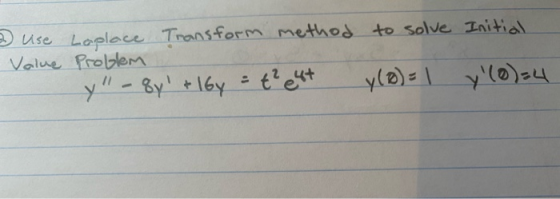 ② Use Laplace Transform method to solve Initial
Value Problem
y'' - 8y' + 16y = t² e⁴ᵗ y(0) = 1 y'(0)=4